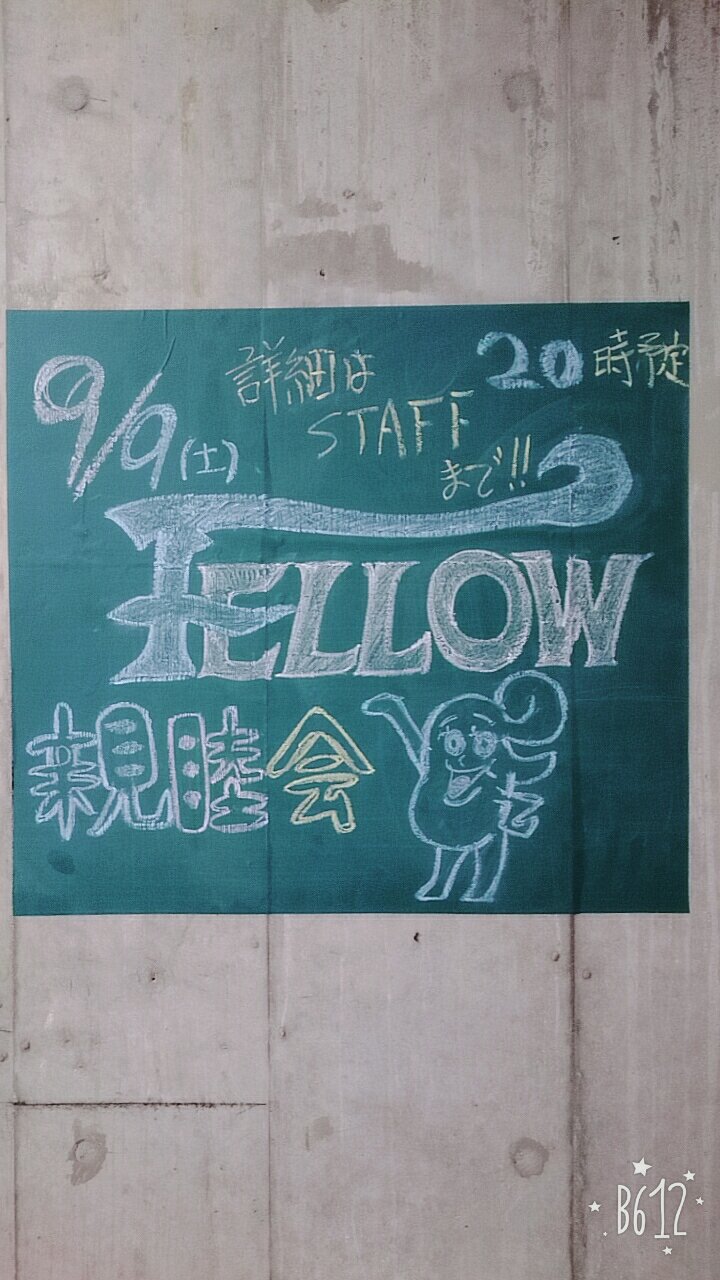 9/9(土)
詳細は
STAFF
まで!!
20時予定
FELLOW
親睦会
B612